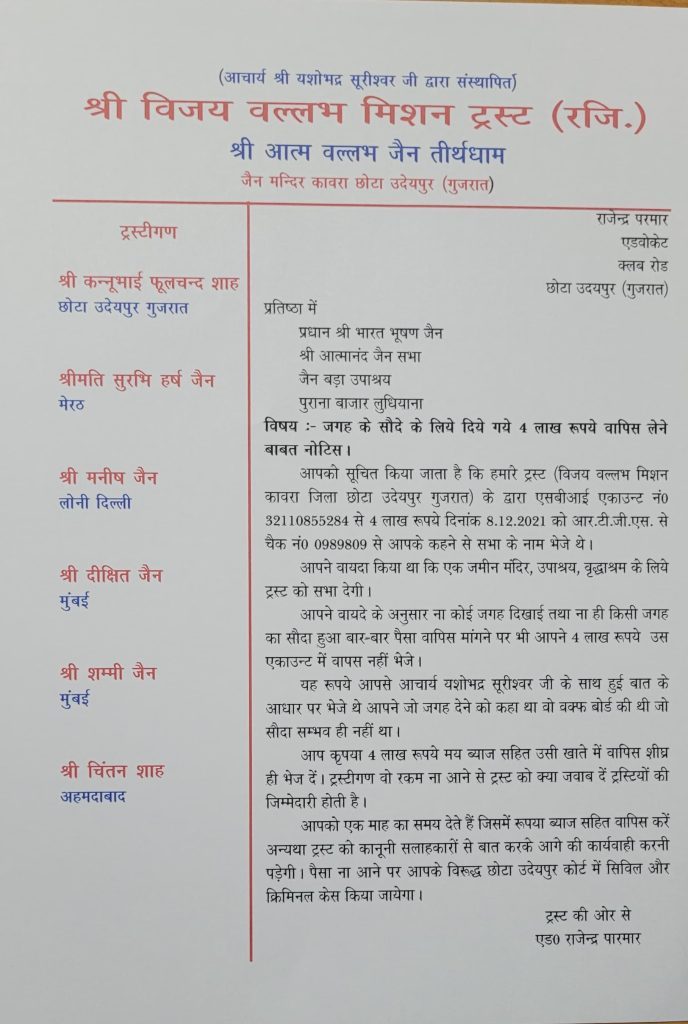 (आचार्य श्री यशोभद्र सूरीश्वर जी द्वारा संस्थापित)
श्री विजय वल्लभ मिशन ट्रस्ट (रजि.)
श्री आत्म वल्लभ जैन तीर्थधाम
जैन मन्दिर कावरा छोटा उदेयपुर (गुजरात)
ट्रस्टीगण
श्री कन्नूभाई फूलचन्द शाह
छोटा उदेयपुर गुजरात
श्रीमति सुरभि हर्ष जैन
मेरठ
श्री मनीष जैन
लोनी दिल्ली
श्री दीक्षित जैन
मुंबई
श्री शम्मी जैन
मुंबई
श्री चिंतन शाह
अहमदाबाद
राजेन्द्र परमार
एडवोकेट
क्लब रोड
छोटा उदयपुर (गुजरात)
प्रतिष्ठा में
प्रधान श्री भारत भूषण जैन
श्री आत्मानंद जैन सभा
जैन बड़ा उपाश्रय
पुराना बाजार लुधियाना
विषय :- जगह के सौदे के लिये दिये गये 4 लाख रूपये वापिस लेने
बाबत नोटिस।
आपको सूचित किया जाता है कि हमारे ट्रस्ट (विजय वल्लभ मिशन
कावरा जिला छोटा उदेयपुर गुजरात) के द्वारा एसबीआई एकाउन्ट नं0
32110855284 से 4 लाख रूपये दिनांक 8.12.2021 को आर.टी.जी.एस. से
चैक नं0 0989809 से आपके कहने से सभा के नाम भेजे थे।
आपने वायदा किया था कि एक जमीन मंदिर, उपाश्रय, वृद्धाश्रम के लिये
ट्रस्ट को सभा देगी।
आपने वायदे के अनुसार ना कोई जगह दिखाई तथा ना ही किसी जगह
का सौदा हुआ बार-बार पैसा वापिस मांगने पर भी आपने 4 लाख रूपये उस
एकाउन्ट में वापस नहीं भेजे।
यह रूपये आपसे आचार्य यशोभद्र सूरीश्वर जी के साथ हुई बात के
आधार पर भेजे थे आपने जो जगह देने को कहा था वो वक्फ बोर्ड की थी जो
सौदा सम्भव ही नहीं था।
आप कृपया 4 लाख रूपये मय ब्याज सहित उसी खाते में वापिस शीघ्र
ही भेज दें। ट्रस्टीगण वो रकम ना आने से ट्रस्ट को क्या जवाब दें ट्रस्टियों की
जिम्मेदारी होती है।
आपको एक माह का समय देते हैं जिसमें रूपया ब्याज सहित वापिस करें
अन्यथा ट्रस्ट को कानूनी सलाहकारों से बात करके आगे की कार्यवाही करनी
पड़ेगी। पैसा ना आने पर आपके विरूद्ध छोटा उदेयपुर कोर्ट में सिविल और
क्रिमिनल केस किया जायेगा।
ट्रस्ट की ओर से
एड0 राजेन्द्र पारमार